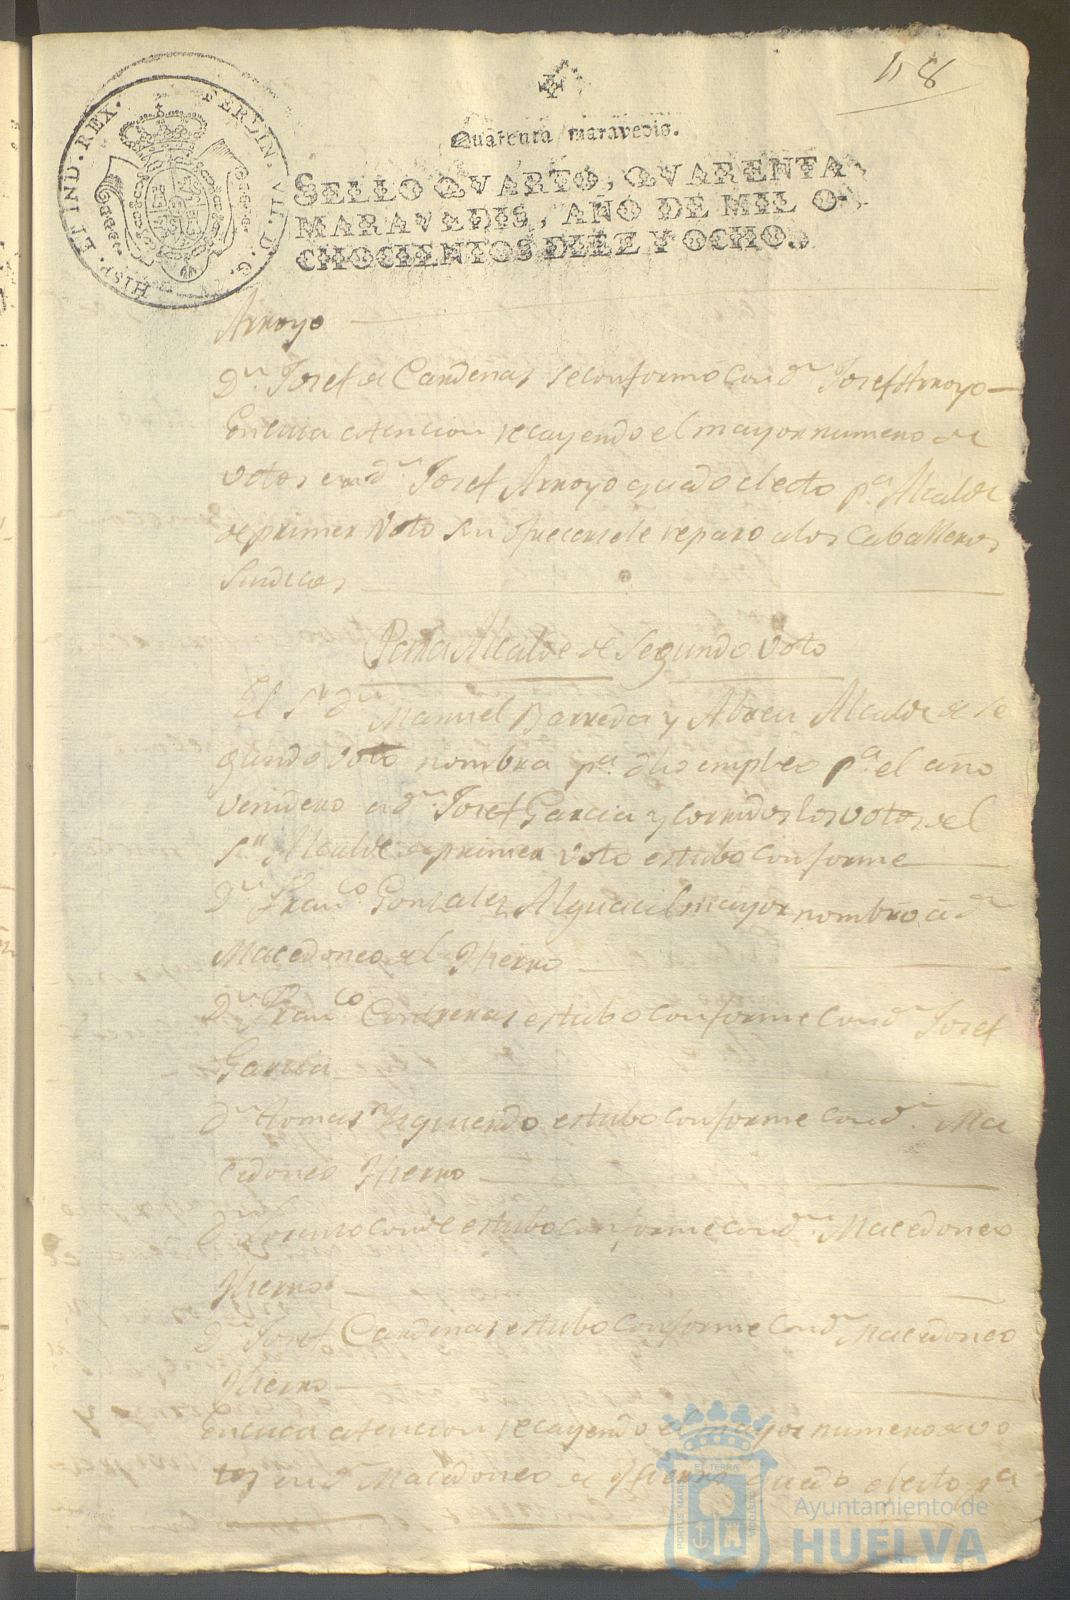 58
Quarenta maravedis.
SELLO QVARTO, QVARENTA
MARAVEDIS, AÑO DE MIL O-
CHOCIENTOS DIEZ Y OCHO.
HISP. ET IND. REX. FERDIN. VII. D. G.
Arroyo
Dn. Josef de Cardenas se conformó con dn. Josef Arroyo
En cuia atencion recayendo el mayor numero de
votos en dn. Josef Arroyo quedó electo pa. Alcalde
de primer Voto sin ofrecersele reparo a los Caballeros
Sindicos
Para Alcalde de Segundo Voto
El Sr. dn. Manuel Barreda y Abreu Alcalde de Se
gundo voto nombra pa. dho empleo pa. el año
venidero a dn. Josef Garcia y corridos los votos el
Sr. Alcalde de primer voto estubo conforme
Dn. Franco. Gonzalez Alguacil mayor nombró á dn.
Macedoneo del Hierro
Dn. Franco. Contreras estubo conforme con dn. Josef
Garcia
dn. Tomas Izquierdo estubo conforme con dn. Ma
cedoneo Hierro
dn. Lorenzo Conde estubo conforme con dn. Macedoneo
Hierro
Dn. Josef Cardenas estubo conforme con dn. Macedoneo
Hierro
En cuia atencion recayendo el mayor numero de vo
tos en dn. Macedoneo de Hierro quedó electo pa.
Ayuntamiento de
HUELVA